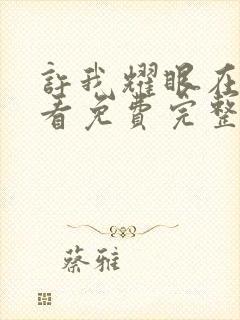 許我耀眼在
看免費完整
蔡雅